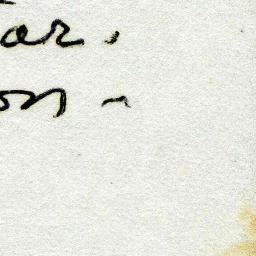 ar.
on -